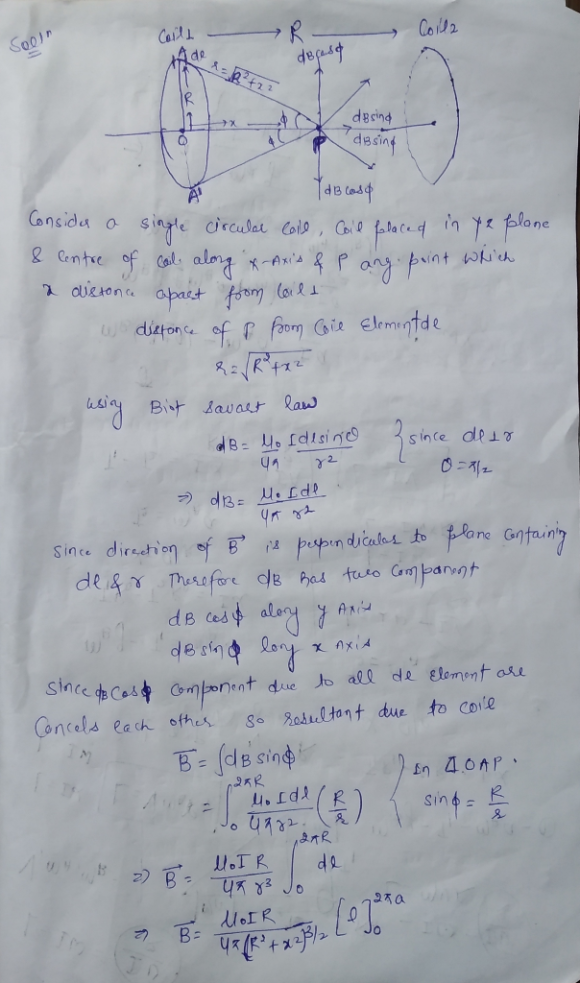 Soln
Coil1 → R → Coil2
A dl
r = √R²+x²
dBcosφ
R
x
φ
φ
dBsinφ
dBsinφ
O
P
A'
dBcosφ
Consider a single circular coil, Coil placed in yz plane
& Centre of coil along x-Axis & P any point which
x distance apart from Coil1
distance of P from Coil Element dl
r = √R²+x²
using Biot Savart law
dB = μ₀ Idlsinθ / 4π r² } since dl⊥r
θ = π/2
⇒ dB = μ₀ Idl / 4π r²
Since direction of B⃗ is perpendicular to plane Containing
dl & r Therefore dB has two Component
dB cosφ along y Axis
dB sinφ long x Axis
Since dBcosφ component due to all dl element are
Cancels each other so resultant due to coil
B⃗ = ∫dB sinφ
= ∫₀^2πR μ₀ Idl / 4πr² (R/r) } In ΔOAP.
sinφ = R/r
⇒ B⃗ = μ₀IR / 4π r³ ∫₀^2πR dl
⇒ B⃗ = μ₀IR / 4π(R²+x²)^3/2 [l]₀^2πa